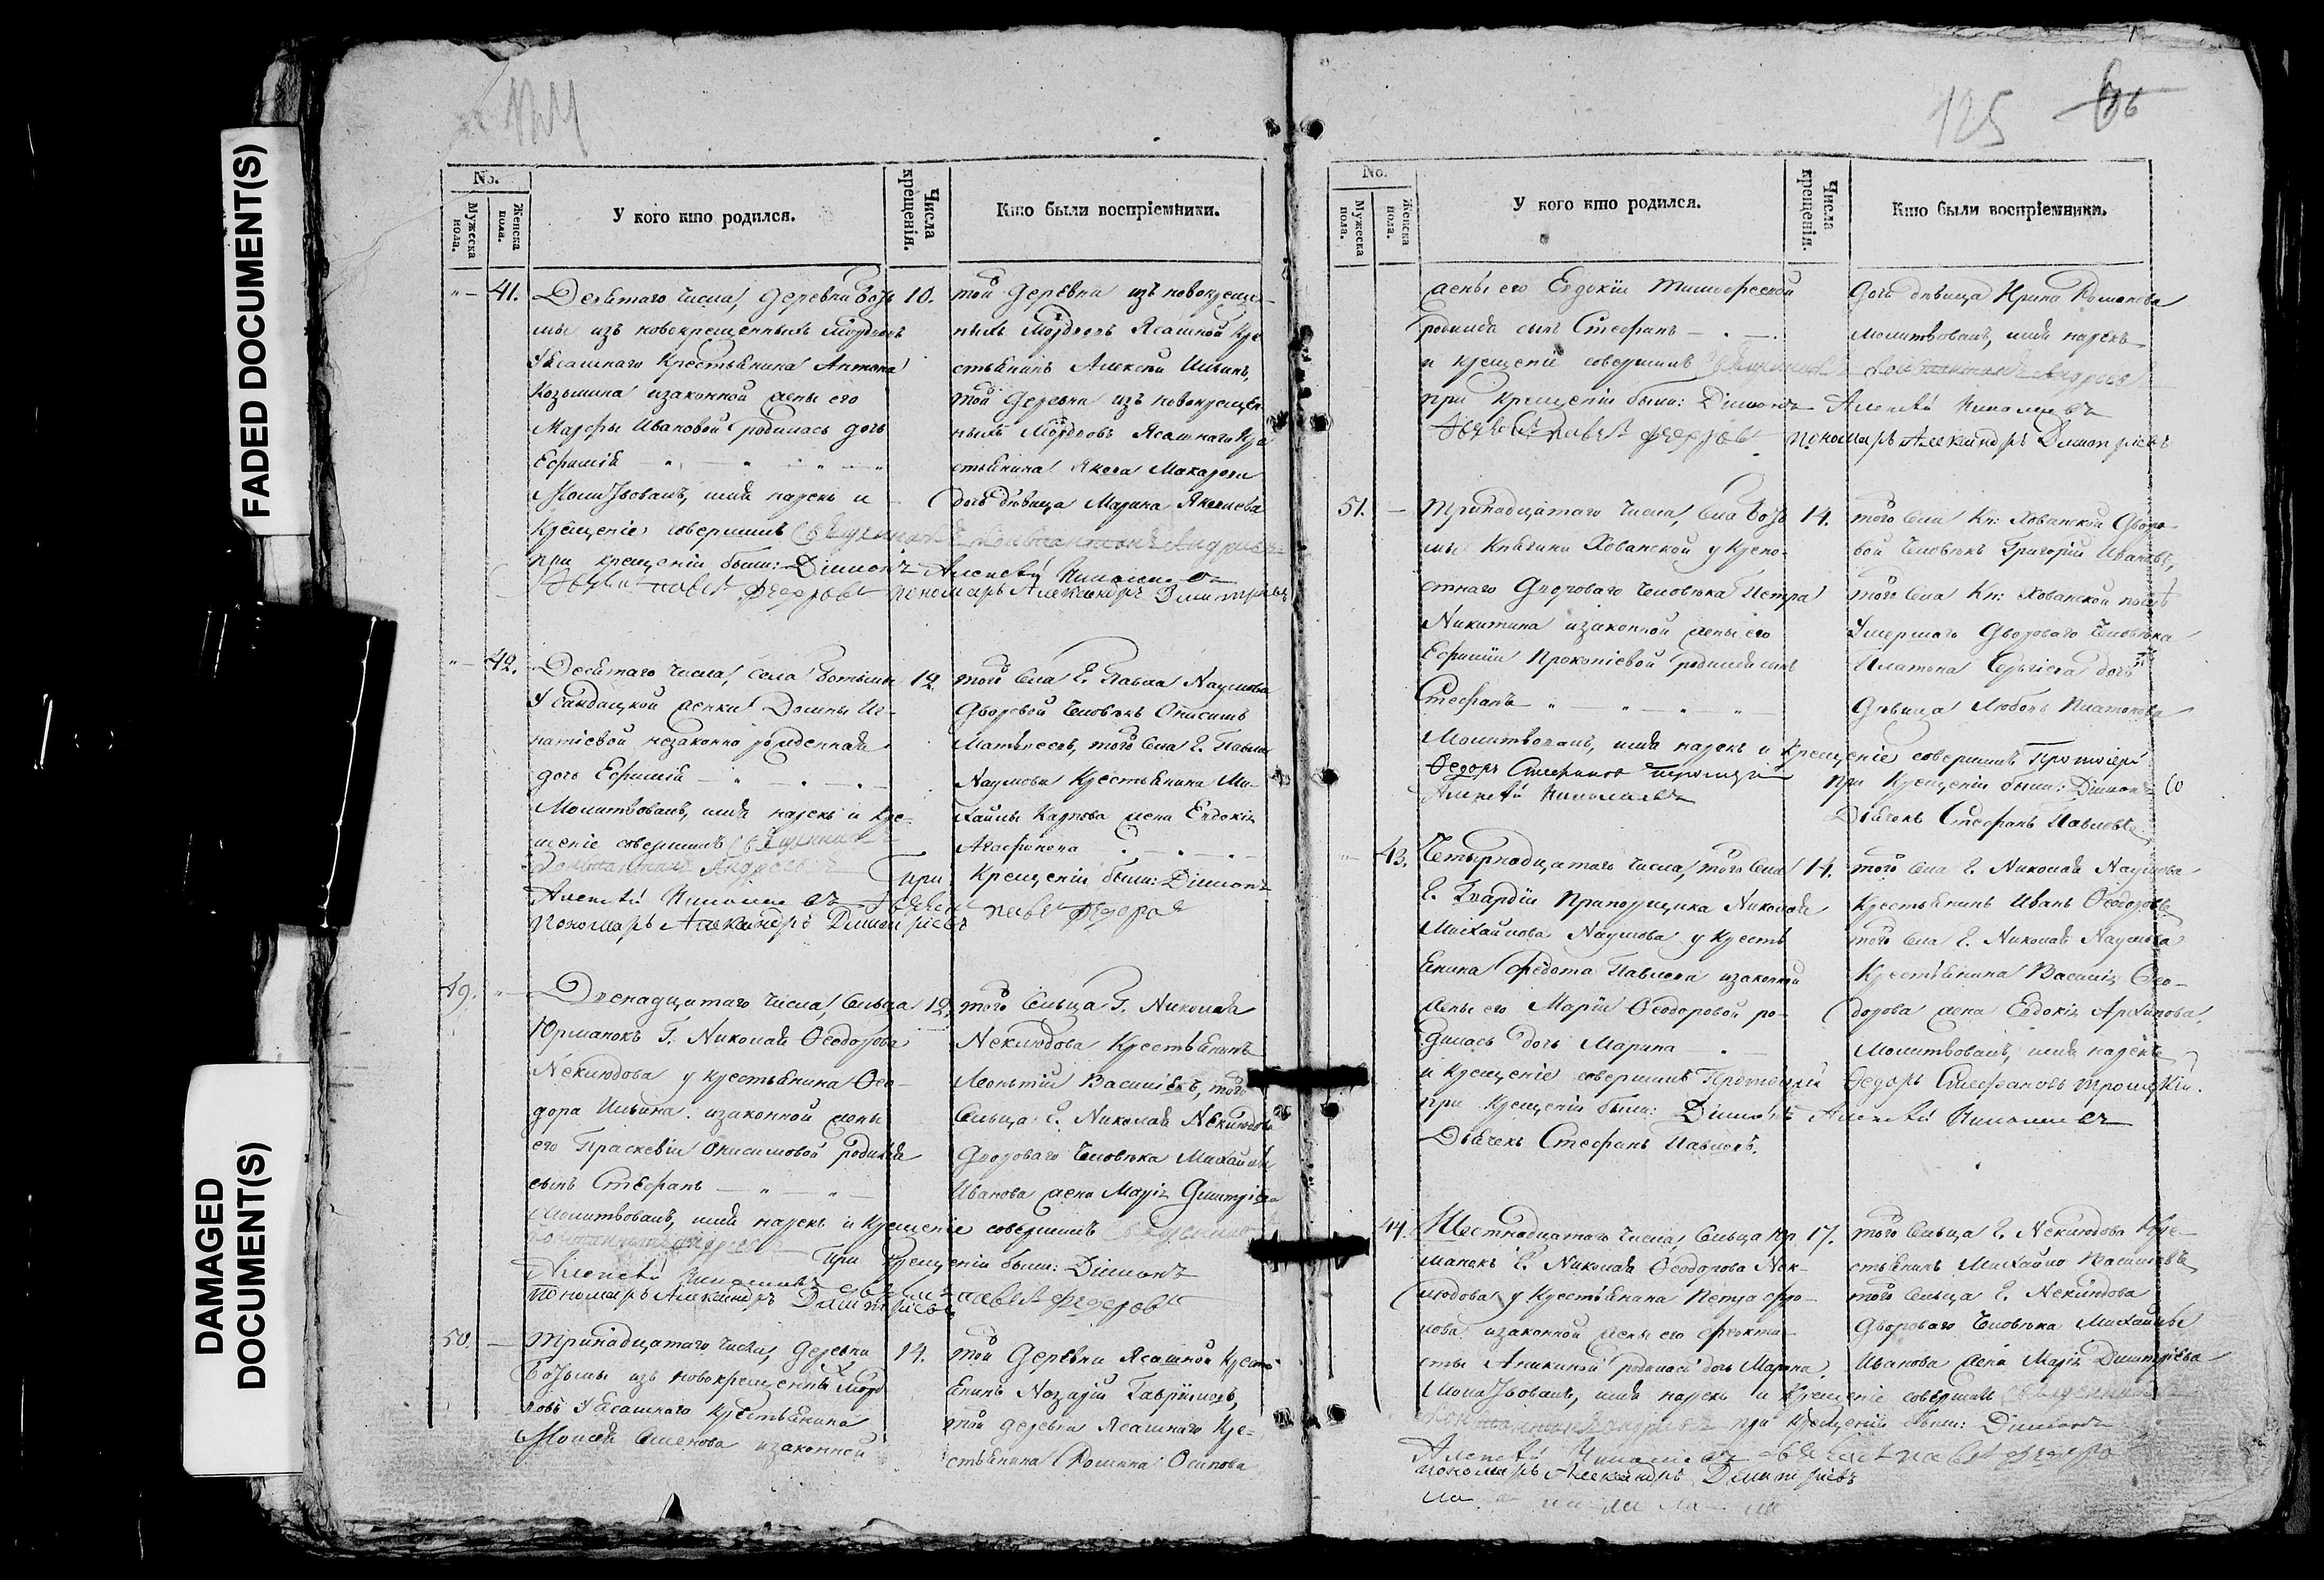 FADED DOCUMENT(S)
DAMAGED
DOCUMENT(S)
124
No.
Мужеска пола.
Женска пола.
У кого кто родился.
Числа крещенія.
Кто были воспріемники.
41.
Девятаго числа, деревни Боть
мы изъ новокрещенныхъ Мордовъ
Уясашнаго Крестьянина Антона
Козьмина изаконной жены его
Марфы Ивановой родилась дочь
Ефимій
Молитвовалъ, имя нарекъ и
Крещеніе совершилъ Священникъ Константинъ Андреевъ
при крещеніи были: Діаконъ Алексѣй Николаевъ
Дьячекъ Павелъ Федоровъ пономарь Александръ Димитріевъ
10.
той деревни изъ новокреще-
ныхъ Мордовъ Ясашной Кре
стьянинъ Алексѣй Ильинъ,
той деревни изъ новокрещен
ныхъ Мордовъ Ясашнаго Кре
стьянина Якова Макарова
дочь дѣвица Марина Яковлева
42.
Десятаго числа, села Ботьмы
У солдацкой женки Домны Иг-
натіевой незаконно рожденная
дочь Ефимій
Молитвовалъ, имя нарекъ и кре-
щеніе совершилъ Священникъ
Константинъ Андреевъ при
Алексѣй Николаевъ Дьячекъ
пономарь Александръ Димитріевъ
12.
того села Г. Павла Наумова
дворовой человѣкъ Онисимъ
Матвѣевъ, того села Г. Павла
Наумова Крестьянина Ми-
хайлы Карпова жена Евдокія
Агафонова
Крещеніи были: Діаконъ
Павелъ Федоровъ
49.
Двенадцатаго числа, сельца
Юрманокъ Г. Николая Ѳеодорова
Неклюдова у крестьянина Ѳео-
дора Ильина изаконной жены
его Праскевіи Онисимовой родился
сынъ Стефанъ
Молитвовалъ, имя нарекъ и Крещеніе совершилъ Священникъ
Константинъ Андреевъ при Крещеніи были: Діаконъ
Алексѣй Николаевъ Дьячекъ Павелъ Федоровъ
пономарь Александръ Димитріевъ
12.
того сельца Г. Николая
Неклюдова Крестьянинъ
Леонтій Васильевъ, того
сельца Г. Николая Неклюдова
двороваго человѣка Михайлы
Иванова жена Марія Дмитріева
50.
Тринадцатаго числа, деревни
Ботьмы изъ новокрещенныхъ Мор
довъ Уясашнаго крестьянина
Моисея Семенова изаконной
14.
той деревни Ясашной Крест
янинъ Назарій Гавриловъ,
той деревни Ясашнаго Кре-
стьянина Романа Осипова
125
No.
Мужеска пола.
Женска пола.
У кого кто родился.
Числа крещенія.
Кто были воспріемники.
жены его Евдокіи Тимофеевой
родился сынъ Стефанъ
и крещеніе совершилъ Священникъ Константинъ Андреевъ
при крещеніи были: Діаконъ Алексѣй Николаевъ
Дьячекъ Павелъ Федоровъ пономарь Александръ Димитріевъ
дочь дѣвица Ирина Романова
молитвовалъ, имя нарекъ
51.
Тринадцатаго числа, села Боть
мы Княгини Хованской у крепо-
стнаго двороваго человѣка Петра
Никитина изаконной жены его
Ефиміи Прокопіевой родился сынъ
Стефанъ
Молитвовалъ, имя нарекъ и крещеніе совершилъ Протоіерей
Ѳедоръ Стефановъ Троицкій при Крещеніи были: Діаконъ
Алексѣй Николаевъ
Дьячекъ Стефанъ Павловъ
14.
того села Кн: Хованской дворо-
вой человѣкъ Григорій Ивановъ,
того села Кн: Хованской послѣ
умершаго двороваго человѣка
Платона Сергіева дочь
дѣвица Любовь Платонова
43.
Четырнадцатаго числа, того села
Г. Гвардіи Прапорщика Николая
Михайлова Наумова у кресть
янина Федота Павлова изаконной
жены его Маріи Ѳеодоровой ро-
дилась дочь Марина
и Крещеніе совершилъ Протоіерей Ѳедоръ Стефановъ Троицкій.
при Крещеніи были: Діаконъ Алексѣй Николаевъ
Дьячекъ Стефанъ Павловъ.
14.
того села Г. Николая Наумова
Крестьянинъ Иванъ Ѳеодоровъ
того села Г. Николая Наумова
Крестьянина Василія Ѳео-
дорова жена Евдокія Архипова.
Молитвовалъ, имя нарекъ
44.
Шестнадцатаго числа, сельца Юр
манокъ Г. Николая Ѳеодорова Нек-
людова у Крестьянина Петра Фро-
лова изаконной жены его Феокти-
сты Аникиной родилась дочь Марина.
Молитвовалъ, имя нарекъ и Крещеніе совершилъ Священникъ
Константинъ Андреевъ при крещеніи были: Діаконъ
Алексѣй Николаевъ Дьячекъ Павелъ Федоровъ
пономарь Александръ Димитріевъ
17.
того сельца Г. Неклюдова Кре-
стьянинъ Михайло Васильевъ
того сельца Г. Неклюдова
двороваго человѣка Михайлы
Иванова жена Марія Димитріева